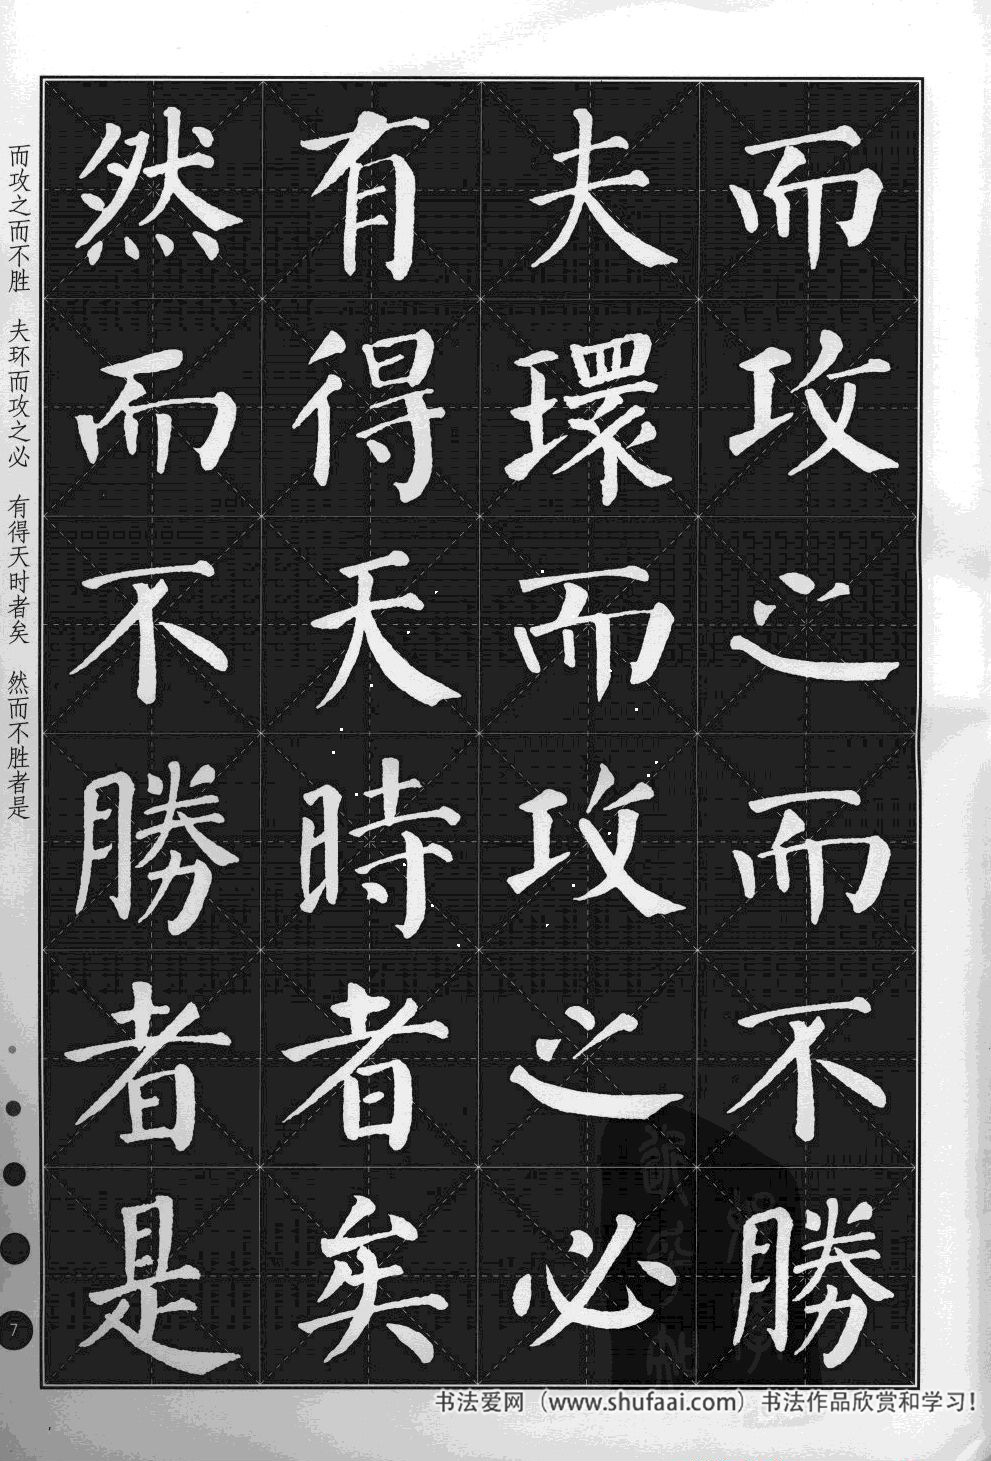 而攻之而不勝
夫環而攻之必
有得天時者矣
然而不勝者是
而攻之而不胜 夫环而攻之必 有得天时者矣 然而不胜者是
7
书法爱网（www.shufaai.com）书法作品欣赏和学习!